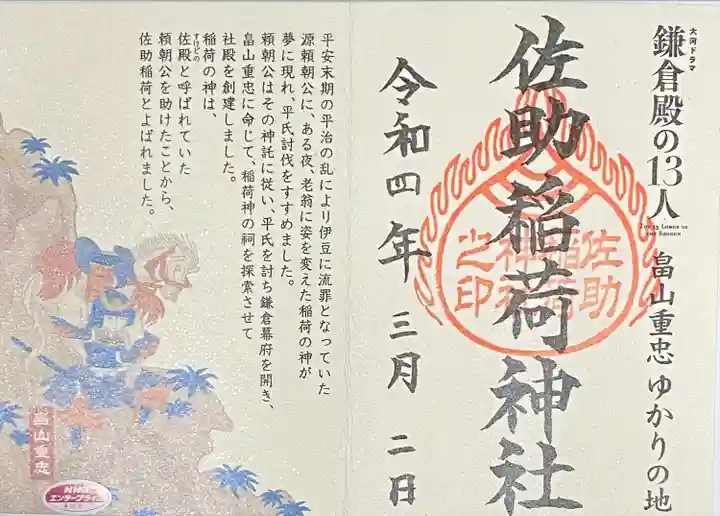 大河ドラマ
鎌倉殿の13人
THE 13 LORDS OF
THE SHOGUN
畠山重忠ゆかりの地
佐助稲荷神社
佐助
稲荷
神社
之印
令和四年三月二日
平安末期の平治の乱により伊豆に流罪となっていた
源頼朝公に、ある夜、老翁に姿を変えた稲荷の神が
夢に現れ、平氏討伐をすすめました。
頼朝公はその神託に従い、平氏を討ち鎌倉幕府を開き、
畠山重忠に命じて、稲荷神の祠を探索させて
社殿を創建しました。
稲荷の神は、
佐殿と呼ばれていた
すけどの
頼朝公を助けたことから、
佐助稲荷とよばれました。
畠山重忠
NHK
エンタープライズ